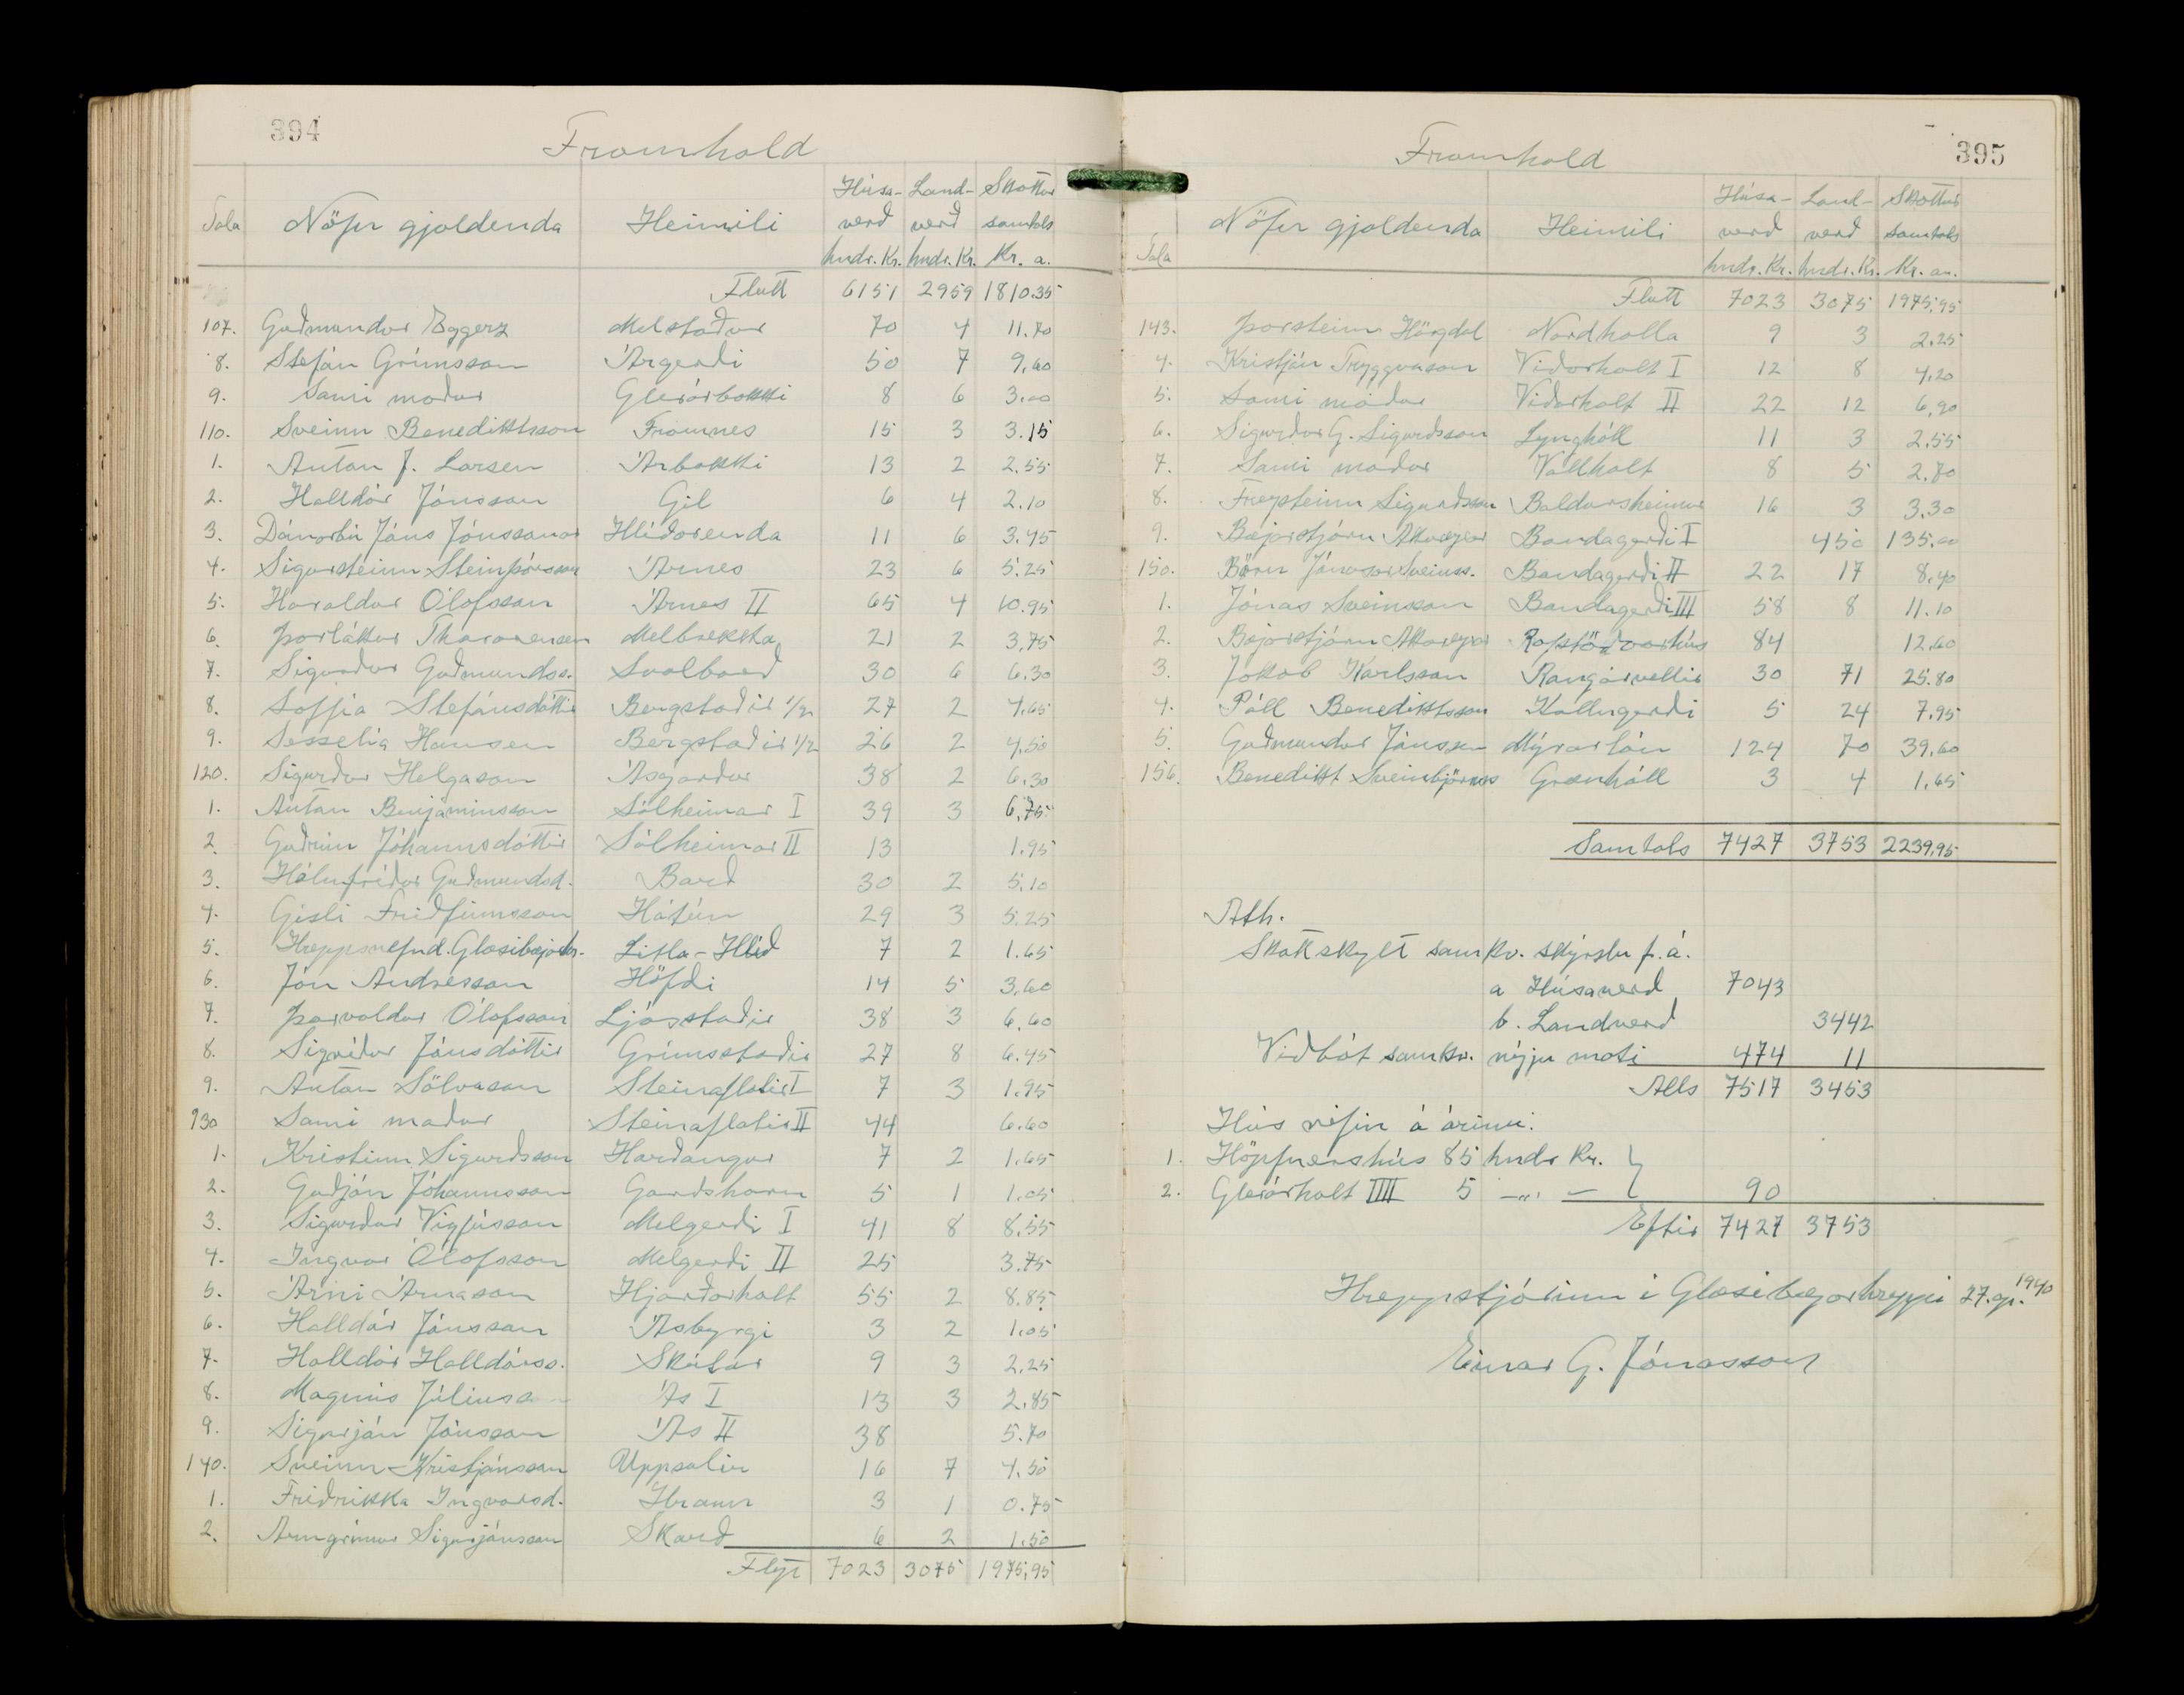 394
Framhald
Tala Nöfn gjaldenda Heimili Húsa-verð hndr. Kr. Land-verð hndr. Kr. Skattur samtals Kr. a.
Flutt 6151 2959 1810.35
107. Guðmundur Eggerz Melstaður 70 4 11.70
8. Stefán Grímsson Árgerði 50 7 9.60
9. Sami maður Glerárbakki 8 6 3.00
110. Sveinn Benediktsson Framnes 15 3 3.15
1. Anton J. Larsen Árbakki 13 2 2.55
2. Halldór Jónsson Gil 6 4 2.10
3. Dánarbú Jóns Jónssonar Hlíðarenda 11 6 3.45
4. Sigursteinn Steinþórsson Árnes 23 6 5.25
5. Haraldur Ólafsson Árnes II 65 4 10.95
6. Þorlákur Thorarensen Melbrekka 21 2 3.75
7. Sigurður Guðmundss. Svalbarð 30 6 6.30
8. Soffía Stefánsdóttir Bergstaðir 1/2 27 2 4.65
9. Sesselía Hansen Bergstaðir 1/2 26 2 4.50
120. Sigurður Helgason Ásgarður 38 2 6.30
1. Anton Benjamínsson Sólheimar I 39 3 6.75
2. Guðrún Jóhannsdóttir Sólheimar II 13 1.95
3. Hólmfríður Guðmundsd. Barð 30 2 5.10
4. Gísli Friðfinnsson Hátún 29 3 5.25
5. Hreppsnefnd. Glæsibæjarhr. Litla-Hlíð 7 2 1.65
6. Jón Andrésson Höfði 14 5 3.60
7. Þorvaldur Ólafsson Ljósstaðir 38 3 6.60
8. Sigríður Jónsdóttir Grímsstaðir 27 8 6.45
9. Anton Sölvason Steinaflatir I 7 3 1.95
130 Sami maður Steinaflatir II 44 6.60
1. Kristinn Sigurðsson Harðangur 7 2 1.65
2. Guðjón Jóhannsson Garðshorn 5 1 1.05
3. Sigurður Vigfússon Melgerði I 41 8 8.55
4. Ingvar Ólafsson Melgerði II 25 3.75
5. Árni Árnason Hjarðarholt 55 2 8.85
6. Halldór Jónsson Ásbyrgi 3 2 1.05
7. Halldór Halldórss. Skútar 9 3 2.25
8. Magnús Júlíuss Ás I 13 3 2.85
9. Sigurjón Jónsson Ás II 38 5.70
140. Sveinn Kristjánsson Uppsalir 16 7 4.50
1. Friðrikka Ingvarsd. Hraun 3 1 0.75
2. Arngrímur Sigurjónsson Skarð 6 2 1.50
Flyt 7023 3075 1975.95
395
Framhald
Tala Nöfn gjaldenda Heimili Húsa-verð hndr. Kr. Land-verð hndr. Kr. Skattur samtals Kr. au.
Flutt 7023 3075 1975.95
143. Þorsteinn Hörgdal Norðhalla 9 3 2.25
4. Kristján Tryggvason Viðarholt I 12 8 4.20
5. Sami maður Viðarholt II 22 12 6.90
6. Sigurður G. Sigurðsson Lynghóll 11 3 2.55
7. Sami maður Vallholt 8 5 2.70
8. Freysteinn Sigurðsson Baldursheimur 16 3 3.30
9. Bæjarstjórn Akureyrar Bandagerði I 450 135.00
150. Börn Jónasar Sveinss. Bandagerði II 22 17 8.40
1. Jónas Sveinsson Bandagerði III 58 8 11.10
2. Bæjarstjórn Akureyrar Rafstöðvarhús 84 12.60
3. Jakob Karlsson Rangárvellir 30 71 25.80
4. Páll Benediktsson Kollugerði 5 24 7.95
5. Guðmundur Jónsson Mýrarlón 124 70 39.60
156. Benedikt Sveinbjörnss Grænhóll 3 4 1.65
Samtals 7427 3753 2239.95
Ath.
Skattskylt samkv. skýrslu f. á.
a Húsaverð 7043
b. Landverð 3442
Viðbót samkv. nýju mati 474 11
Alls 7517 3453
Hús rifin á árinu:
1. Höpfnershús 85 hndr Kr. }
2. Glerárholt IIII 5 —„— } 90
Eftir 7427 3753
Hreppstjórinn í Glæsibæjarhreppi 27. ap. 1940
Einar G. Jónasson